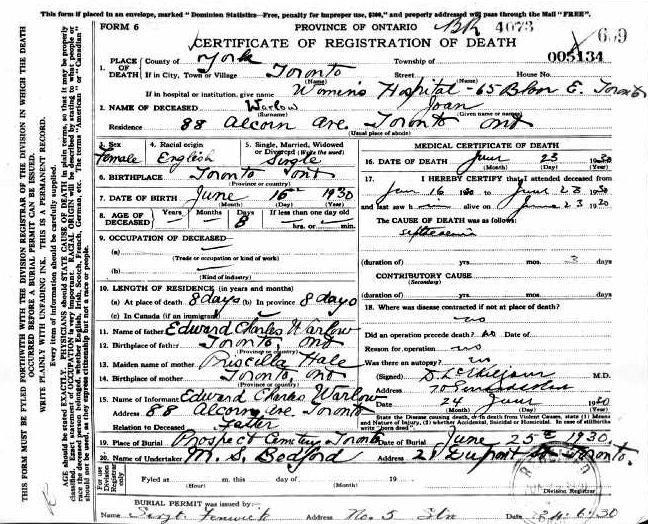 This form if placed in an envelope, marked "Dominion Statistics—Free, penalty for improper use, $300," and properly addressed will pass through the Mail "FREE".
FORM 6
PROVINCE OF ONTARIO
4073
659
CERTIFICATE OF REGISTRATION OF DEATH
005134
1. PLACE OF DEATH
County of York
Township of
If in City, Town or Village Toronto
(Name)
Street
House No.
If in hospital or institution, give name Women's Hospital - 65 Bloor E. Toronto
2. NAME OF DECEASED Warlow Joan
(Surname) (Given name or names)
Residence 88 Alcorn Ave. Toronto Ont
(Usual place of abode)
3. Sex Female
4. Racial origin English
5. Single, Married, Widowed or Divorced (Write the word) Single
6. BIRTHPLACE Toronto Ont
(Province or country)
7. DATE OF BIRTH June 16th 1930
(Month) (Day) (Year)
8. AGE OF DECEASED
Years Months Days If less than one day old
8
hrs. or min.
9. OCCUPATION OF DECEASED
(a)
(Trade or occupation or kind of work)
(b)
(Kind of industry)
10. LENGTH OF RESIDENCE (in years and months)
(a) At place of death 8 days (b) In province 8 days
(c) In Canada (if an immigrant)
11. Name of father Edward Charles Warlow
12. Birthplace of father Toronto, Ont
(Province or country)
13. Maiden name of mother Priscilla Hale
14. Birthplace of mother Toronto, Ont
(Province or country)
15. Name of Informant Edward Charles Warlow
Address 88 Alcorn Ave. Toronto
Relation to Deceased Father
MEDICAL CERTIFICATE OF DEATH
16. DATE OF DEATH June 23 1930
(Month) (Day) (Year)
17. I HEREBY CERTIFY that I attended deceased from
June 16 1930 to June 23 1930
and last saw h alive on June 23 1930
The CAUSE OF DEATH was as follows:
septicaemia
(duration of) yrs. mos. 3 days
CONTRIBUTORY CAUSE
(Secondary)
(duration of) yrs. mos. days
18. Where was disease contracted if not at place of death?
Did an operation precede death? no Date of
Reason for operation no
Was there an autopsy? no
(Signed) M.D.
Address
Date 24 June 1930
(Month) (Day) (Year)
State the Disease causing death, or in death from Violent Causes, state (1) Means and Nature of Injury, (2) whether Accidental, Suicidal or Homicidal. In case of stillbirths write "born dead".
19. Place of Burial Prospect Cemetery Toronto Date of Burial June 25th 1930.
20. Name of Undertaker M. S. Bedford Address Dupont St Toronto.
For use of Division Registrar only
Filed at m. this day of 19
(Hour) (Month)
Division Registrar
BURIAL PERMIT was issued by:
Name Sergt. Fenwick Address No. 5 Stn Date 24.6.30
THIS FORM MUST BE FYLED FORTHWITH WITH THE DIVISION REGISTRAR OF THE DIVISION IN WHICH THE DEATH
OCCURRED BEFORE A BURIAL PERMIT CAN BE ISSUED.
WRITE PLAINLY WITH UNFADING INK. THIS IS A PERMANENT RECORD.
Every item of information should be carefully supplied.